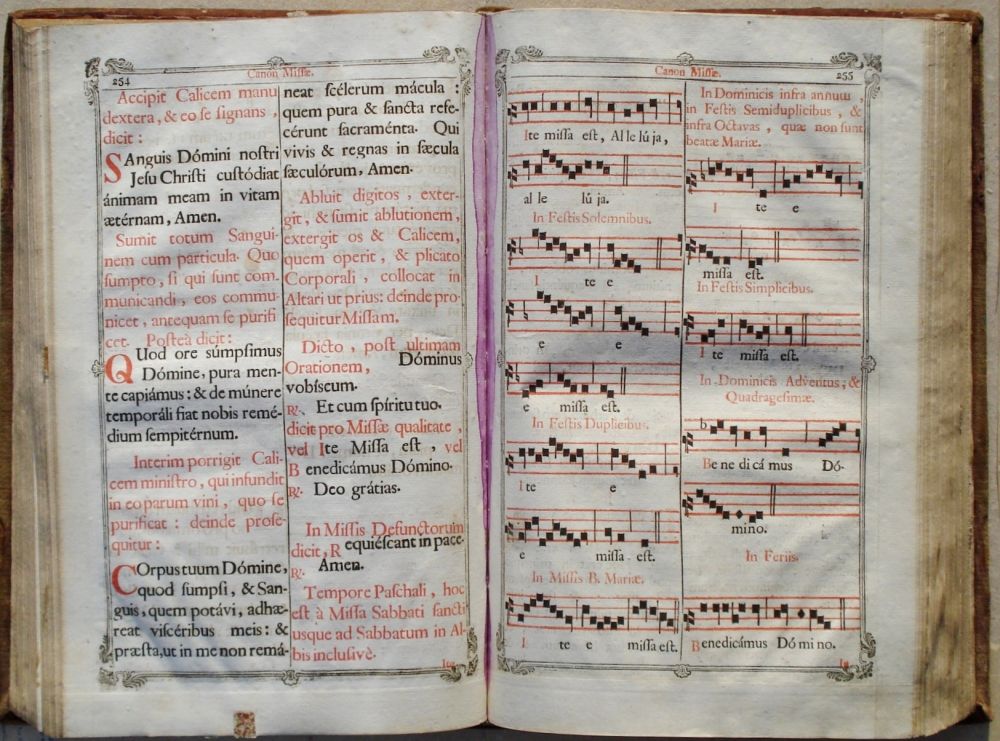 254
Canon Missæ.
Accipit Calicem manu
dextera, & eo se signans,
dicit:
SAnguis Dómini nostri
Jesu Christi custódiat
ánimam meam in vitam
ætérnam, Amen.
Sumit totum Sangui-
nem cum particula. Quo
sumpto, si qui sunt com-
municandi, eos commu-
nicet, antequam se purifi
cet. Posteà dicit:
QUod ore súmpsimus
Dómine, pura men-
te capiámus: & de múnere
temporáli fiat nobis remé-
dium sempitérnum.
Interim porrigit Cali-
cem ministro, qui infundit
in eo parum vini, quo se
purificat: deinde prose-
quitur:
COrpus tuum Dómine,
quod sumpsi, & San-
guis, quem potávi, adhæ-
reat viscéribus meis: &
præsta, ut in me non remá-
neat scélerum mácula:
quem pura & sancta refe-
cérunt sacraménta. Qui
vivis & regnas in sæcula
sæculórum, Amen.
Abluit digitos, exter-
git, & sumit ablutionem,
extergit os & Calicem,
quem operit, & plicato
Corporali, collocat in
Altari ut prius: deinde pro-
sequitur Missam.
Dicto, post ultimam
Orationem, Dóminus
vobíscum.
℟. Et cum spíritu tuo.
dicit pro Missæ qualitate,
vel Ite Missa est, vel
B enedicámus Dómino.
℟. Deo grátias.
In Missis Defunctorum
dicit, R equiéscant in pace.
℟. Amen.
Tempore Paschali, hoc
est à Missa Sabbati sancti
usque ad Sabbatum in Al-
bis inclusivè.
Canon Missæ.
255
Ite missa est, Al le lú ja,
al le lú ja.
In Festis Solemnibus.
I te e
e e
e missa est.
In Festis Duplicibus.
I te e
e missa est.
In Missis B. Mariæ.
I te e missa est.
In Dominicis infra annum,
in Festis Semiduplicibus, &
infra Octavas, quæ non sunt
beatæ Mariæ.
I te e
missa est.
In Festis Simplicibus.
I te missa est.
In Dominicis Adventus, &
Quadragesimæ.
Be ne di cá mus Dó-
mino.
In Feriis.
Benedicámus Dó mi no.